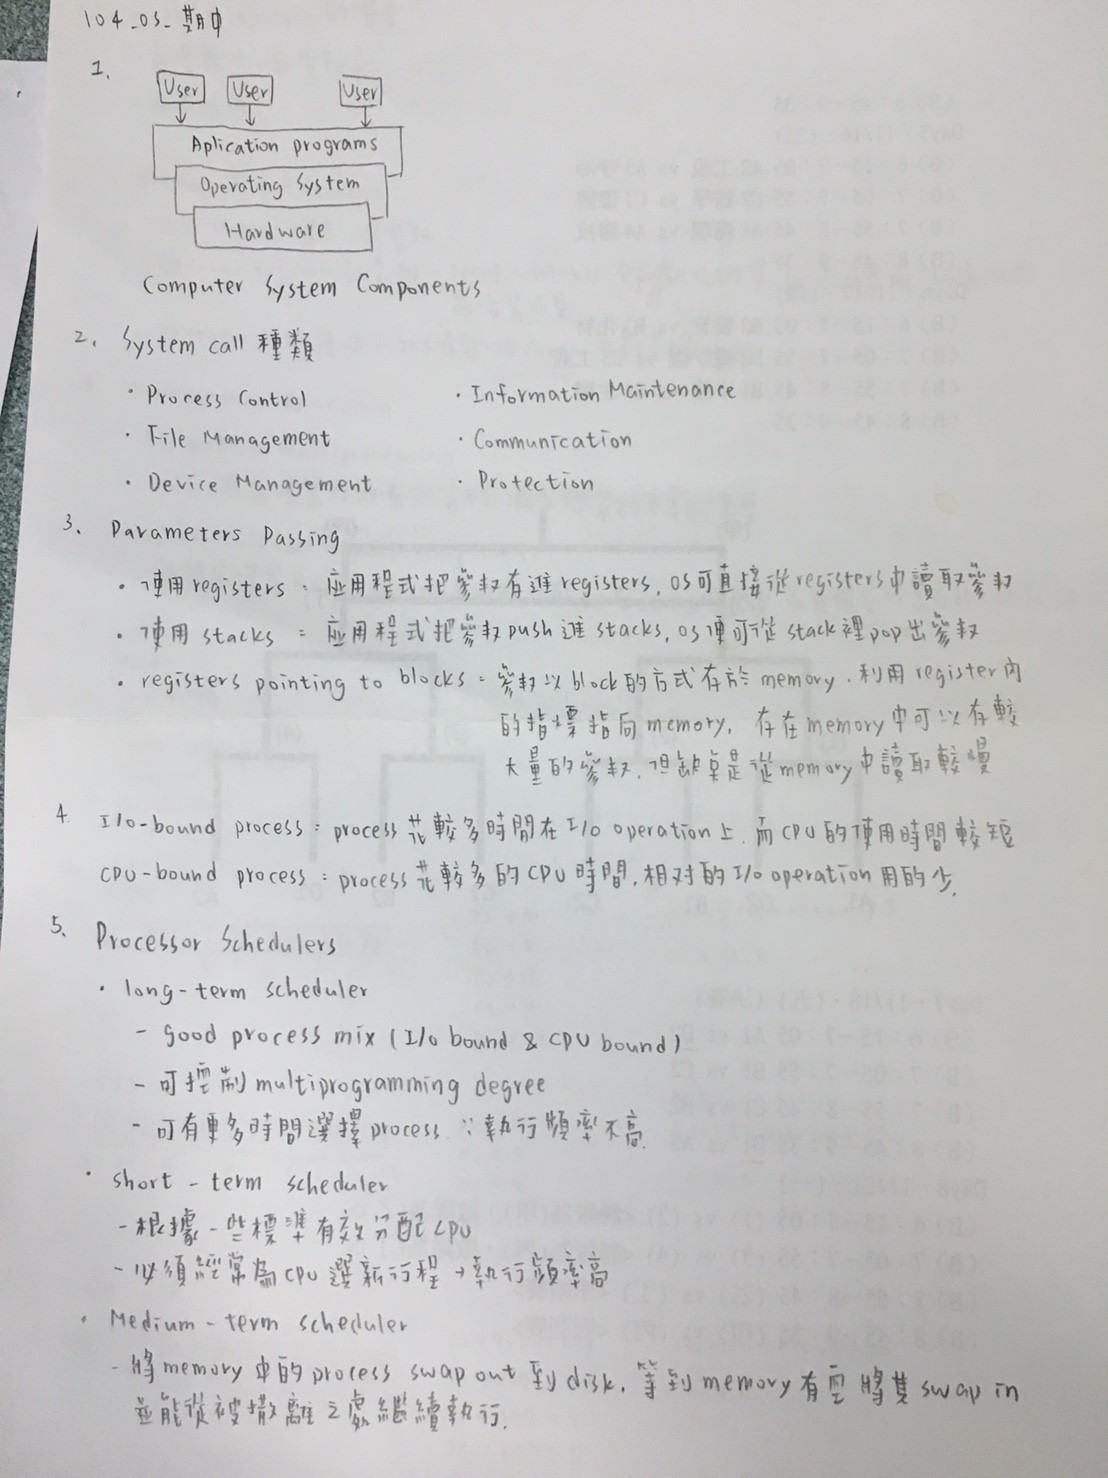 104_OS_期中
1.
User User User
Aplication programs
Operating System
Hardware
Computer System Components
2. System call 種類
· Process Control
· Information Maintenance
· File Management
· Communication
· Device Management
· Protection
3. Parameters Passing
· 使用 registers : 应用程式把參数存進 registers, OS可直接從registers中讀取參数
· 使用 stacks : 应用程式把參数push進 stacks, OS便可從 stack裡pop出參数
· registers pointing to blocks : 參数以block的方式存於 memory. 利用 register內
的指標指向memory, 存在memory中可以存較
大量的參数, 但缺點是從memory中讀取較慢
4. I/O-bound process : process 花較多時間在 I/O operation上, 而CPU的使用時間較短
CPU-bound process : process花較多的CPU時間, 相对的I/O operation用的少.
5. Processor Schedulers
· long-term scheduler
- good process mix (I/O bound & CPU bound)
- 可控制 multiprogramming degree
- 可有更多時間選擇process ∵執行頻率不高
· short-term scheduler
- 根據一些標準有效分配CPU
- 必須經常為CPU選新行程→執行頻率高
· Medium-term scheduler
- 將memory中的process swap out到disk, 等到memory有空將其swap in
並能從被撤離之處繼續執行.